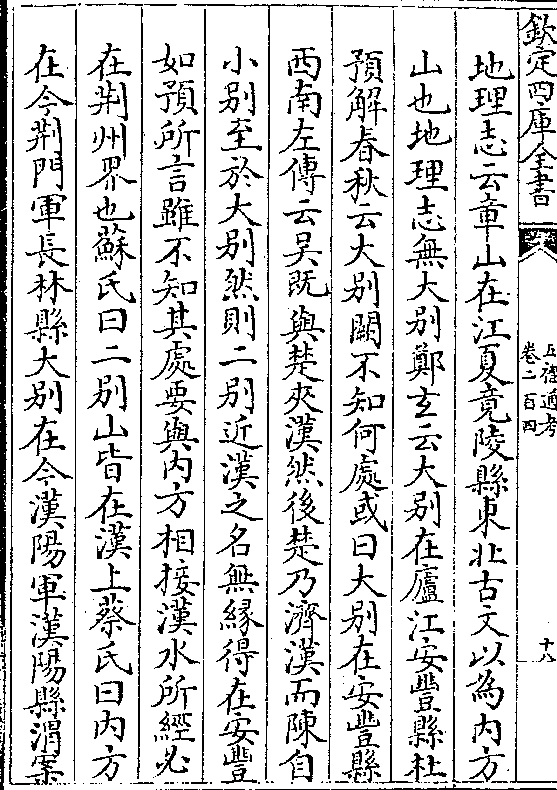 欽定四庫全書
五禮通考
卷二百四
十八
地理志云章山在江夏竟陵縣東北古文以為内方
山也地理志無大别鄭𤣥云大别在廬江安豐縣杜
預解春秋云大别闕不知何處或曰大别在安豐縣
西南左傳云吳既與楚夾漢然後楚乃濟漢而陳自
小别至於大别然則二别近漢之名無緣得在安豐
如預所言雖不知其處要與内方相接漢水所經必
在荆州界也蘇氏曰二别山皆在漢上蔡氏曰内方
在今荆門軍長林縣大别在今漢陽軍漢陽縣渭案